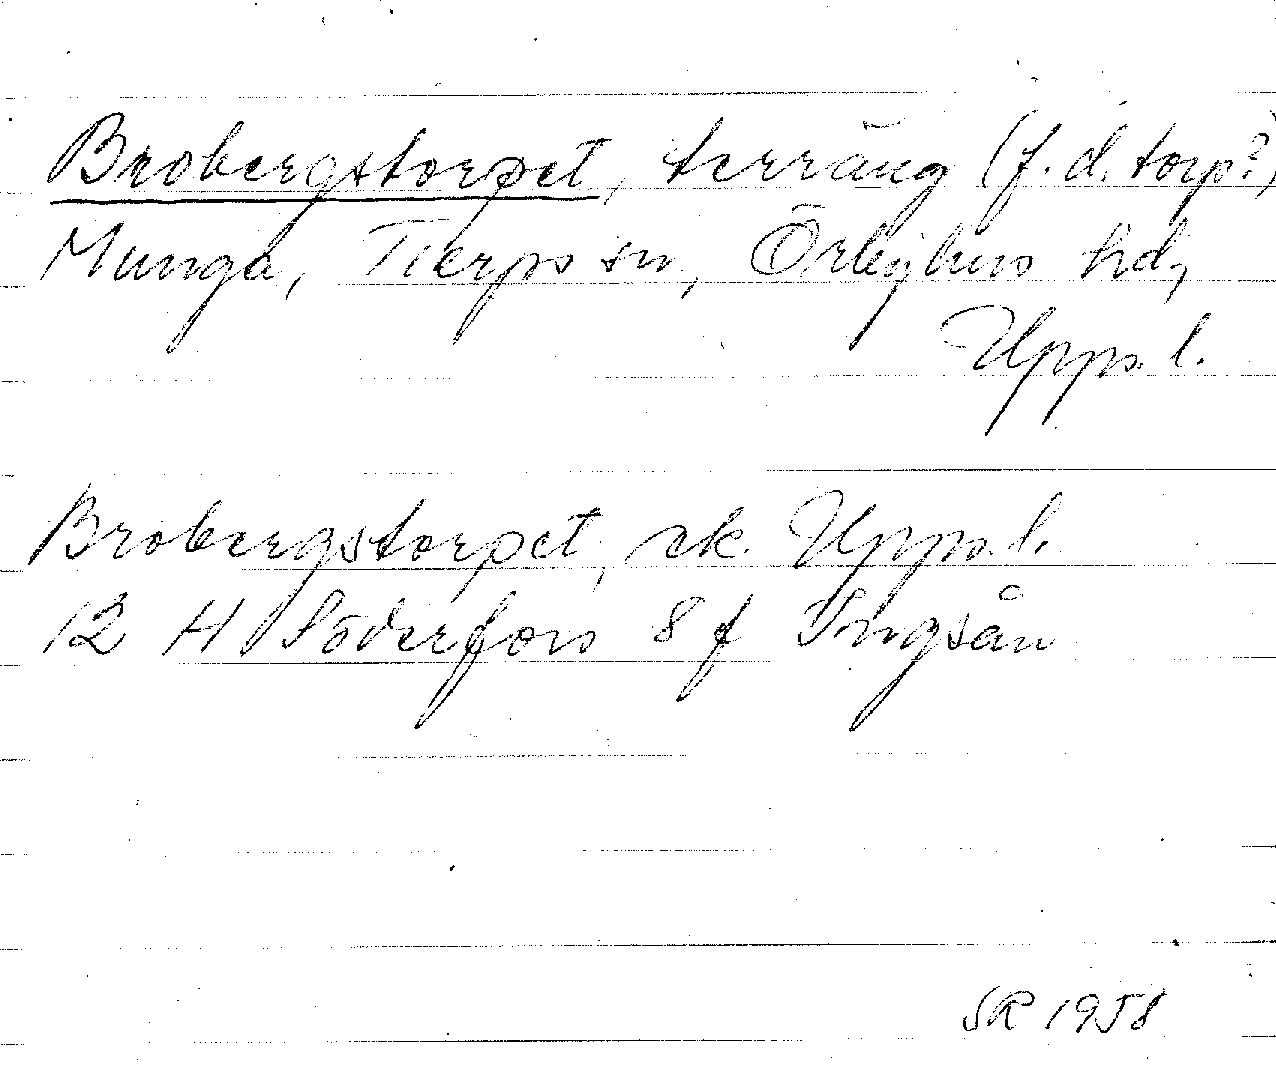 Brobergstorpet, terräng (f.d. torp?)
Munga, Tierps sn, Örbyhus hd,
Upps. l.
Brobergstorpet, ek. Upps. l.
12 H Söderfors 8 f Tingsån
SR 1958